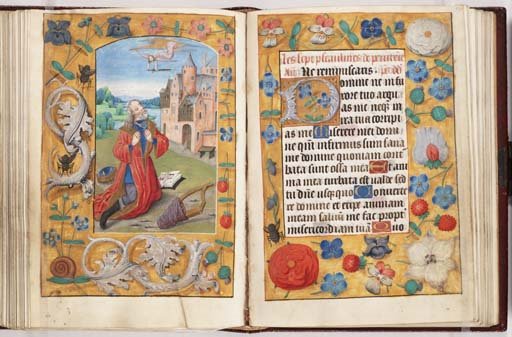 Les sept pseaulmes de penitence
Ne reminiscaris
Domine ne in fu
rore tuo argu
as me neq in
ira tua corripi
as me Miserere mei domi
ne qm infirmus sum sana
me domine quoniam contur
bata sunt ossa mea Et ani
ma mea turbata est valde sed
tu dñe usquequo Convertere
domine et eripe animam
meam salvū me fac propt
misericordiam tuā Quo